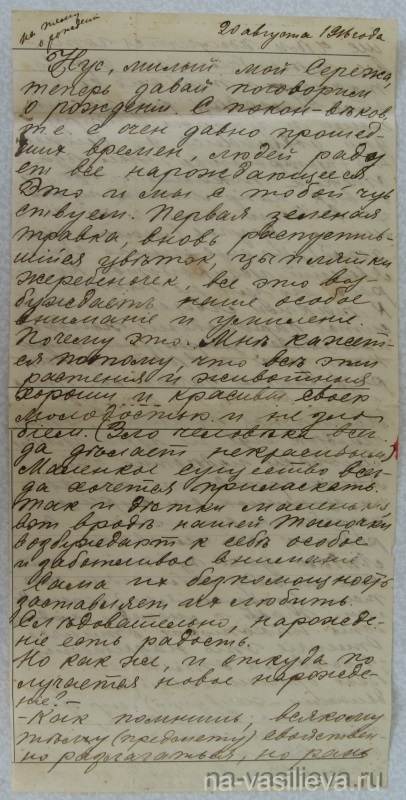 на тему
о рождении
20 августа 1916 года
Нус, милый мой Сережа,
теперь давай поговорим
о рождении. С покон-вѣков,
т.е. с очен давно прошед-
ших времен, людей раду
ет все нарождающееся
Это и мы с тобой чув
ствуем. Первая зеленая
травка, вновь распустив-
шийся цвѣток, цыплятки
жеребеночек, все это воз-
буждаетъ наше особое
внимание и умиление.
Почему это. Мнѣ кажет-
ся потому, что всѣ эти
растения и животныя
хороши и красивы своей
молодостью и не зло
бием. (Зло человѣка всег
да дѣлает некрасивым)
Маленькое существо всег
да хочется приласкать.
Так и дѣтки маленькия
вот вродѣ нашей
возбуждают к себѣ особое
и заботливое внимание
Сама их беспомощность
заставляет их любить.
Слѣдовательно, нарожде-
ние есть радость.
Но как же, и откуда по
лучается новое нарожде-
ние?
- Как помнишь, всякому
тѣлу (предмету) свойствен-
но разлагаться, но рань
na-vasilieva.ru